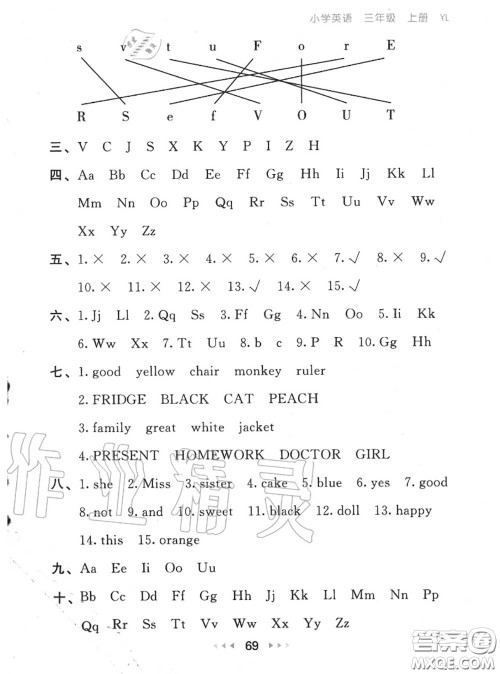 小学英语 三年级 上册 YL
s v t u F o r E
R S e f V O U T
三、V C J S X K Y P I Z H
四、Aa Bb Cc Dd Ee Ff Gg Hh Ii Jj Kk Ll
Mm Nn Oo Pp Qq Rr Ss Tt Uu Vv Ww
Xx Yy Zz
五、1.× 2.× 3.× 4.× 5.× 6.× 7.√ 8.× 9.√
10.× 11.× 12.× 13.√ 14.× 15.√
六、1.Jj Ll 2.Qq Ss 3.Ff Gg 4.Nn Oo 5.Ii Kk
6.Ww Xx 7.Tt Uu 8.b c 9.P R 10.Ff Gg
七、1.good yellow chair monkey ruler
2.FRIDGE BLACK CAT PEACH
3.family great white jacket
4.PRESENT HOMEWORK DOCTOR GIRL
八、1.she 2.Miss 3.sister 4.cake 5.blue 6.yes 7.good
8.not 9.and 10.sweet 11.black 12.doll 13.happy
14.this 15.orange
九、Aa Ee Ii Oo Uu
十、Bb Cc Dd Ff Gg Hh Jj Kk Ll Mm Nn Pp
Qq Rr Ss Tt Vv Ww Xx Yy Zz
69
作业精灵